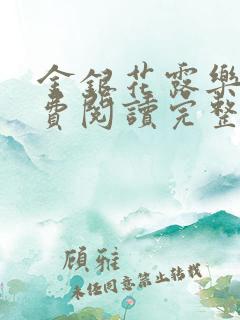 金銀花露樂
費閱讀完整
顧雅
未經同意禁止轉載